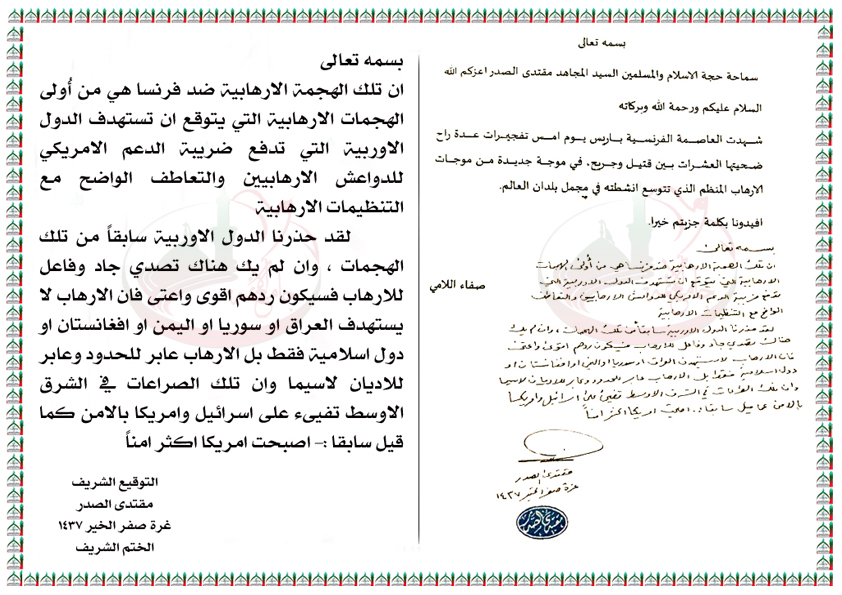 بسمه تعالى
سماحة حجة الاسلام والمسلمين السيد المجاهد مقتدى الصدر اعزكم الله
السلام عليكم ورحمة الله وبركاته
شهدت العاصمة الفرنسية باريس يوم امس تفجيرات عدة راح
ضحيتها العشرات بين قتيل وجريح، في موجة جديدة من موجات
الارهاب المنظم الذي تتوسع انشطته في مجمل بلدان العالم.
افيدونا بكلمة جزيتم خيرا.
صفاء اللامي
بسمه تعالى
ان تلك الهجمة الارهابية ضد فرنسا هي من أولى الهجمات
الارهابية التي يتوقع ان تستهدف الدول الاوربية التي
تدفع ضريبة الدعم الامريكي للدواعش الارهابيين والتعاطف
الواضح مع التنظيمات الارهابية
لقد حذرنا الدول الاوربية سابقاً من تلك الهجمات ، وان لم يك
هناك تصدي جاد وفاعل للارهاب فسيكون ردهم اقوى واعتى
فان الارهاب لا يستهدف العراق او سوريا او اليمن او افغانستان او
دول اسلامية فقط بل الارهاب عابر للحدود وعابر للاديان لاسيما
وان تلك الصراعات في الشرق الاوسط تفيء على اسرائيل وامريكا
بالامن كما قيل سابقاً :- اصبحت امريكا اكثر امناً
مقتدى الصدر
غرة صفر الخير ١٤٣٧
مقتدى الصدر
بسمه تعالى
ان تلك الهجمة الارهابية ضد فرنسا هي من أُولى
الهجمات الارهابية التي يتوقع ان تستهدف الدول
الاوربية التي تدفع ضريبة الدعم الامريكي
للدواعش الارهابيين والتعاطف الواضح مع
التنظيمات الارهابية
لقد حذرنا الدول الاوربية سابقاً من تلك
الهجمات ، وان لم يك هناك تصدي جاد وفاعل
للارهاب فسيكون ردهم اقوى واعتى فان الارهاب لا
يستهدف العراق او سوريا او اليمن او افغانستان او
دول اسلامية فقط بل الارهاب عابر للحدود وعابر
للاديان لاسيما وان تلك الصراعات في الشرق
الاوسط تفييء على اسرائيل وامريكا بالامن كما
قيل سابقا :- اصبحت امريكا اكثر امناً
التوقيع الشريف
مقتدى الصدر
غرة صفر الخير ١٤٣٧
الختم الشريف